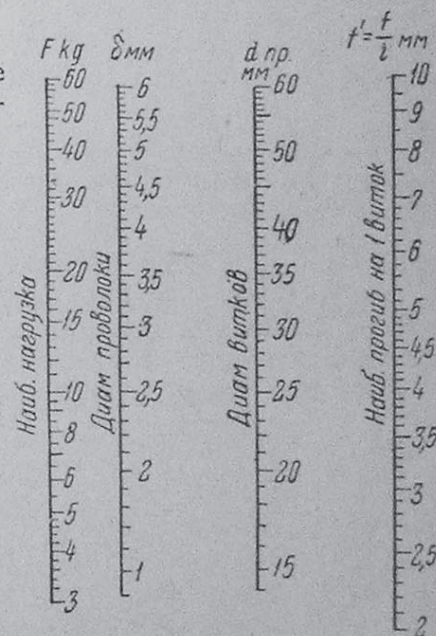 F kg
60
50
40
30
20
15
10
8
6
5
4
3
Наиб. нагрузка
δ мм
6
5,5
5
4,5
4
3,5
3
2,5
2
1
Диам проволоки
d пр.
мм
60
50
40
35
30
25
20
15
Диам витков
f'= f/i мм
10
9
8
7
6
5
4,5
4
3,5
3
2,5
2
Наиб. прогиб на 1 виток